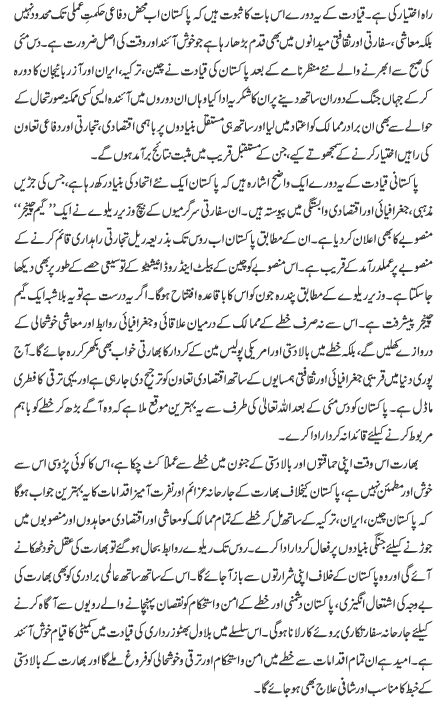 راہ اختیار کی ہے۔ قیادت کے یہ دورے اس بات کا ثبوت ہیں کہ پاکستان اب محض دفاعی حکمتِ عملی تک محدود نہیں
بلکہ معاشی، سفارتی اور ثقافتی میدانوں میں بھی قدم بڑھا رہا ہے جو خوش آئند اور وقت کی اصل ضرورت ہے۔ دس مئی
کی صبح سے ابھرنے والے نئے منظر نامے کے بعد پاکستان کی قیادت نے چین، ترکیہ، ایران اور آزربائیجان کا دورہ
کر کے جہاں جنگ کے دوران ساتھ دینے پر ان کا شکریہ ادا کیا وہاں ان دوروں میں آئندہ ایسی کسی ممکنہ صورتحال کے
حوالے سے بھی ان برادر ممالک کو اعتماد میں لیا اور ساتھ ہی مستقل بنیادوں پر باہمی اقتصادی، تجارتی اور دفاعی تعاون
کی راہیں اختیار کرنے کے سمجھوتے کیے، جن کے مستقبل قریب میں مثبت نتائج برآمد ہوں گے۔
پاکستانی قیادت کے یہ دورے ایک واضح اشارہ ہیں کہ پاکستان ایک نئے اتحاد کی بنیاد رکھ رہا ہے، جس کی جڑیں
مذہبی، جغرافیائی اور اقتصادی وابستگی میں پیوستہ ہیں۔ ان سفارتی سرگرمیوں کے بیچ وزیر ریلوے نے ایک ”گیم چینجر“
منصوبے کا بھی اعلان کر دیا ہے۔ ان کے مطابق پاکستان اب روس تک بذریعہ ریل تجارتی راہداری قائم کرنے کے
منصوبے پر عملدرآمد کے قریب ہے۔ اس منصوبے کو چین کے بیلٹ اینڈ روڈ انیشیٹو کے توسیعی حصے کے طور پر بھی دیکھا
جا سکتا ہے۔ وزیر ریلوے کے مطابق پندرہ جون کو اس کا باقاعدہ افتتاح ہوگا۔ اگر یہ درست ہے تو یہ بلاشبہ ایک گیم
چینجر پیشرفت ہے۔ اس سے نہ صرف خطے کے ممالک کے درمیان علاقائی و جغرافیائی روابط اور معاشی خوشحالی کے
دروازے کھلیں گے، بلکہ خطے میں بالا دستی اور امریکی پولیس مین کے کردار کا بھارتی خواب بھی بکھر کر رہ جائے گا۔ آج
پوری دنیا میں قریبی جغرافیائی اور ثقافتی ہمسایوں کے ساتھ اقتصادی تعاون کو ترجیح دی جا رہی ہے اور یہی ترقی کا فطری
ماڈل ہے۔ پاکستان کو دس مئی کے بعد اللہ تعالیٰ کی طرف سے یہ بہترین موقع ملا ہے کہ وہ آگے بڑھ کر خطے کو باہم
مربوط کرنے کیلئے قائدانہ کردار ادا کرے۔
بھارت اس وقت اپنی حماقتوں اور بالا دستی کے جنون میں خطے سے عملاً کٹ چکا ہے، اس کا کوئی پڑوسی اس سے
خوش اور مطمئن نہیں ہے، پاکستان کیخلاف بھارت کے جارحانہ عزائم اور نفرت آمیز اقدامات کا یہ بہترین جواب ہوگا
کہ پاکستان چین، ایران، ترکیہ کے ساتھ مل کر خطے کے تمام ممالک کو معاشی اور اقتصادی معاہدوں اور منصوبوں میں
جوڑنے کیلئے جنگی بنیادوں پر فعال کردار ادا کرے۔ روس تک ریلوے روابط بحال ہو گئے تو بھارت کی عقل خود ٹھکانے
آئے گی اور وہ پاکستان کے خلاف اپنی شرارتوں سے باز آ جائے گا۔ اس کے ساتھ ساتھ عالمی برادری کو بھی بھارت کی
بے وجہ کی اشتعال انگیزی، پاکستان دشمنی اور خطے کے امن و استحکام کو نقصان پہنچانے والے رویوں سے آگاہ کرنے
کیلئے جارحانہ سفارتکاری بروئے کار لانا ہوگی۔ اس سلسلے میں بلاول بھٹو زرداری کی قیادت میں کمیٹی کا قیام خوش آئند
ہے۔ امید ہے ان تمام اقدامات سے خطے میں امن و استحکام اور ترقی و خوشحالی کو فروغ ملے گا اور بھارت کے بالا دستی
کے خبط کا مناسب اور شافی علاج بھی ہو جائے گا۔